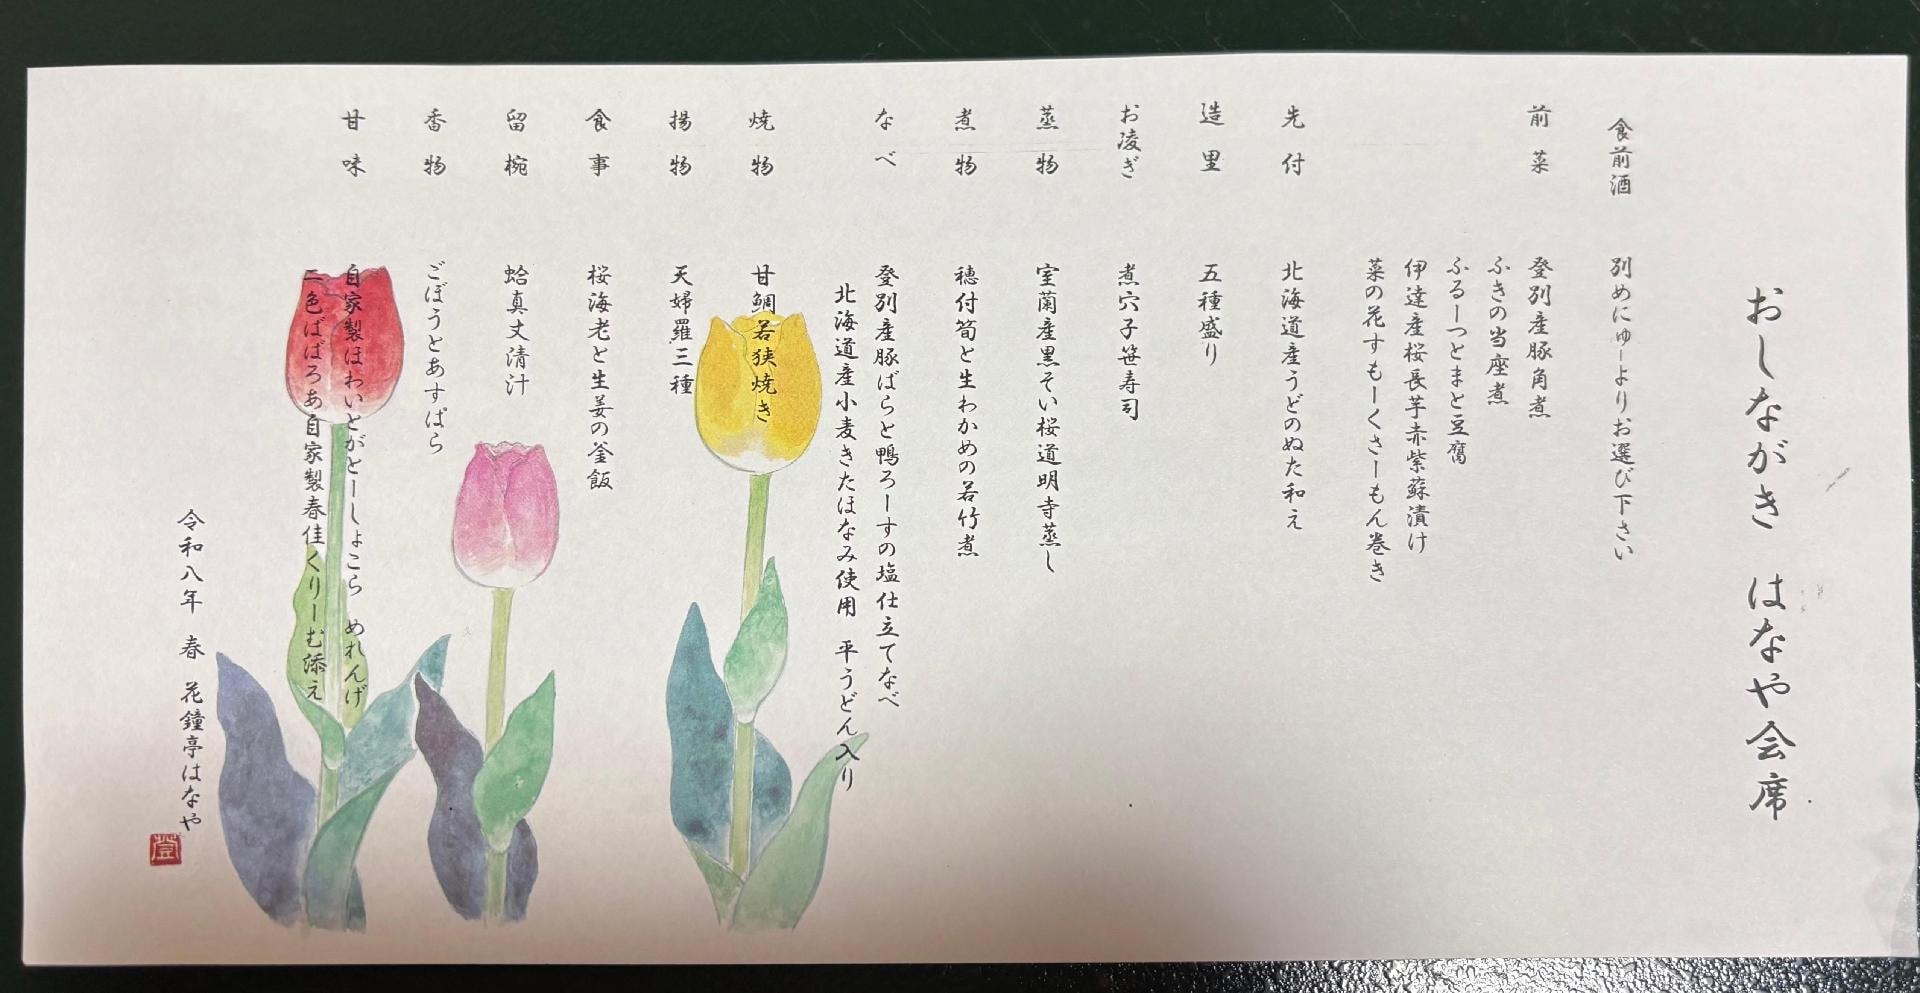 おしながき はなや会席
食前酒 別めにゅーよりお選び下さい
前菜 登別産豚角煮
ふきの当座煮
ふるーつとまと豆腐
伊達産桜長芋赤紫蘇漬け
菜の花すもーくさーもん巻き
先付 北海道産うどのぬた和え
造里 五種盛り
お凌ぎ 煮穴子笹寿司
蒸物 室蘭産黒そい桜道明寺蒸し
煮物 穂付筍と生わかめの若竹煮
なべ 登別産豚ばらと鴨ろーすの塩仕立てなべ
北海道産小麦きたほなみ使用 平うどん入り
焼物 甘鯛若狭焼き
揚物 天婦羅三種
食事 桜海老と生姜の釜飯
留椀 蛤真丈清汁
香物 ごぼうとあすぱら
甘味 自家製ほわいとがとーしょこら めれんげ
二色ばばろあ自家製春佳くりーむ添え
令和八年 春 花鐘亭はなや
登